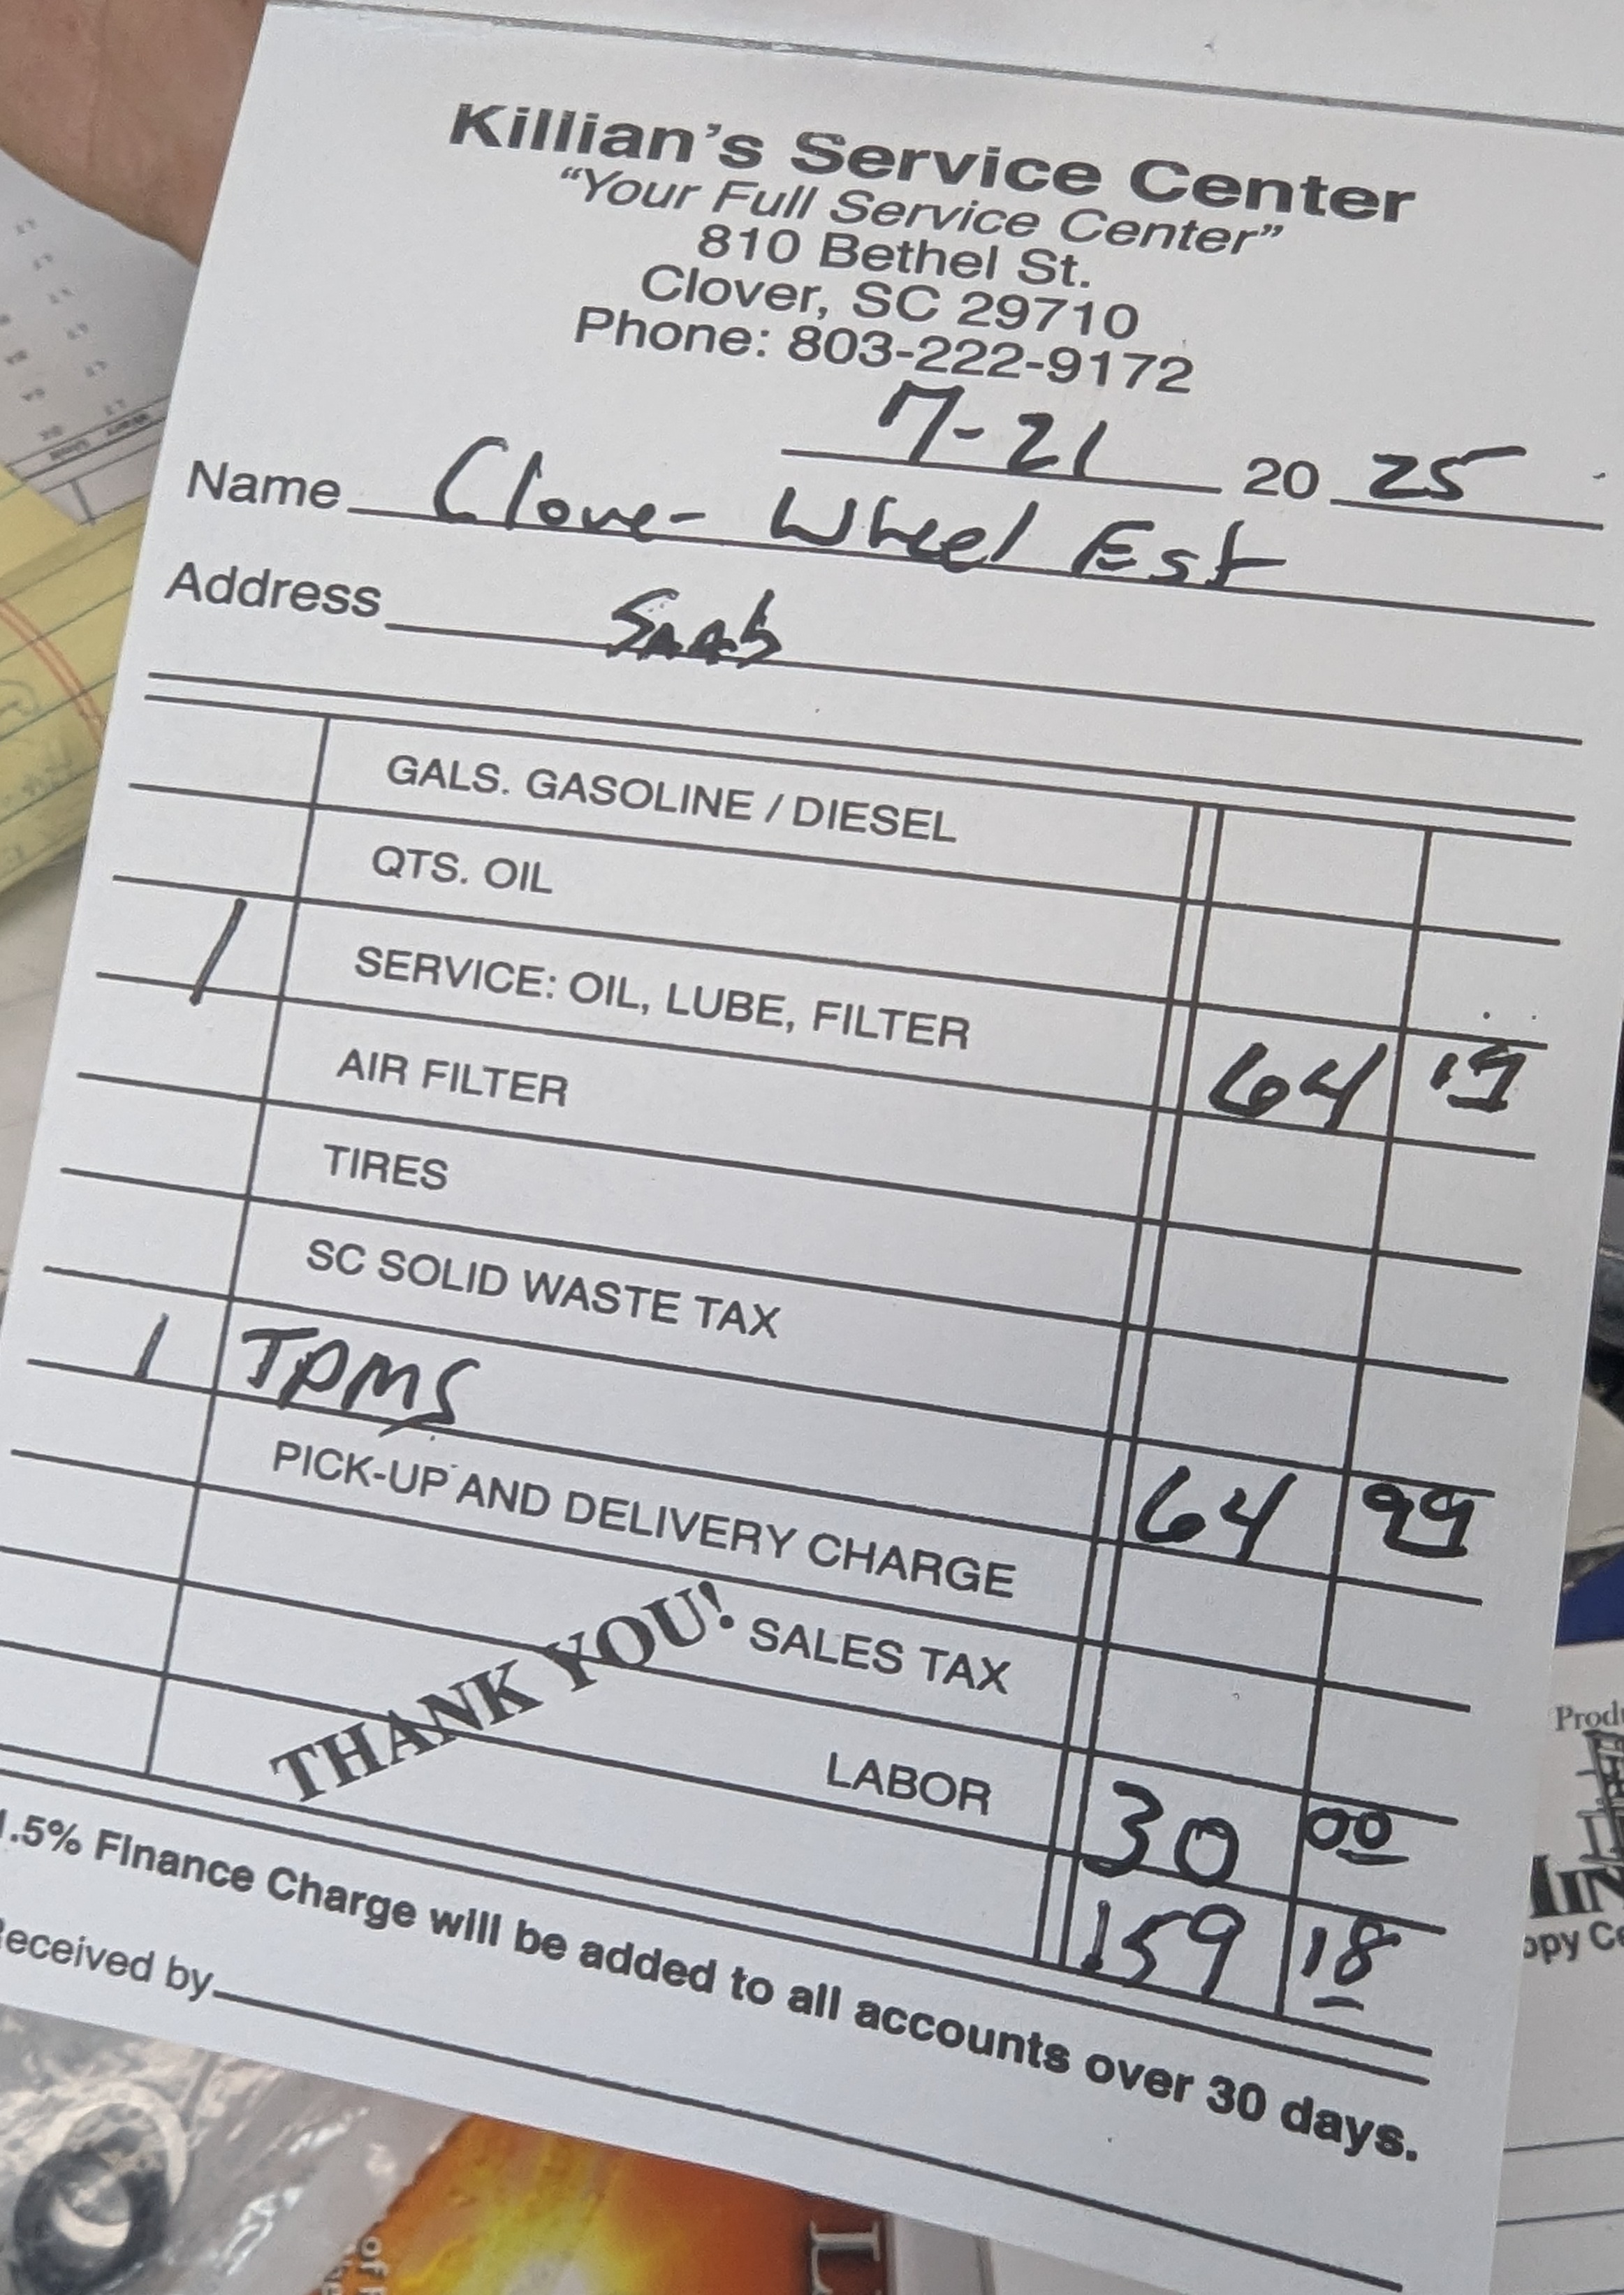 Killian's Service Center
"Your Full Service Center"
810 Bethel St.
Clover, SC 29710
Phone: 803-222-9172
7-21 20 25
Name Clover Wheel Est
Address Saab
GALS. GASOLINE / DIESEL
QTS. OIL
1 SERVICE: OIL, LUBE, FILTER 64 19
AIR FILTER
TIRES
SC SOLID WASTE TAX
1 TPMS 64 99
PICK-UP AND DELIVERY CHARGE
SALES TAX
THANK YOU!
LABOR 30 00
159 18
1.5% Finance Charge will be added to all accounts over 30 days.
Received by